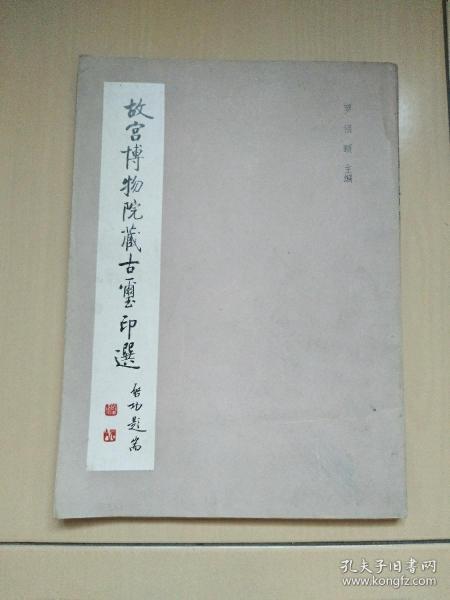 故宫博物院藏古璽印選
啓功題耑
羅福頤 主編
孔夫子旧书网
www.kongfz.com